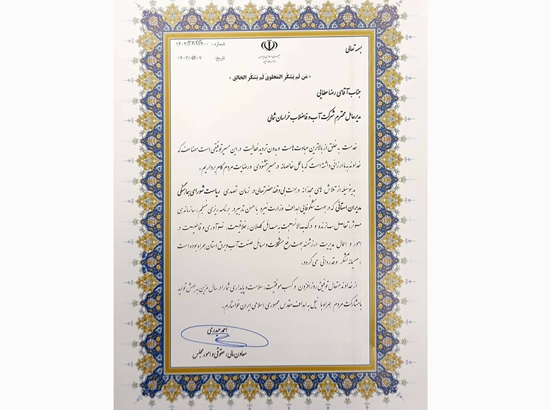 بسمه تعالی
شماره: ۱۴۰۲/۳۴۹۶/۲۰۰
تاریخ: ۱۴۰۲/۰۹/۰۷
« مَن لَم یَشکُرِ المَخلوق لَم یَشکُرِ الخالِق »
جناب آقای رضا عطایی
مدیرعامل محترم شرکت آب و فاضلاب خراسان شمالی
خدمت به خلق از بالاترین عبادت‌هاست و بدون تردید فعالیت در این مسیر توفیقی است مضاعف که
خداوند به ما ارزانی داشته است که با عمل خالصانه در مسیر خشنودی و رضایت مردم گام برداریم.
بدینوسیله از تلاش های مجدانه و بی وقفه حضرتعالی در زمان تصدی ریاست شورای هماهنگی
مدیران استانی که در جهت شکوفایی اهداف وزارت نیرو با حسن تدبیر و برنامه ریزی منسجم، سازماندهی
موثر، تعامل سازنده و درک مسائل کلان، خلاقیت، نوآوری و قاطعیت در
امور و اعمال مدیریت ارزشمند جهت رفع مشکلات و مسائل صنعت آب و برق استان همراه بوده است
صمیمانه تشکر و قدردانی می گردد.
از خداوند متعال توفیق روز افزون و کسب موفقیت، سلامت و پایداری شما را در سال مزین به جهش تولید
با مشارکت مردم همراه با نیل به اهداف مقدس جمهوری اسلامی ایران خواستارم.
احمد حیدری
معاون مالی، حقوقی و امور مجلس